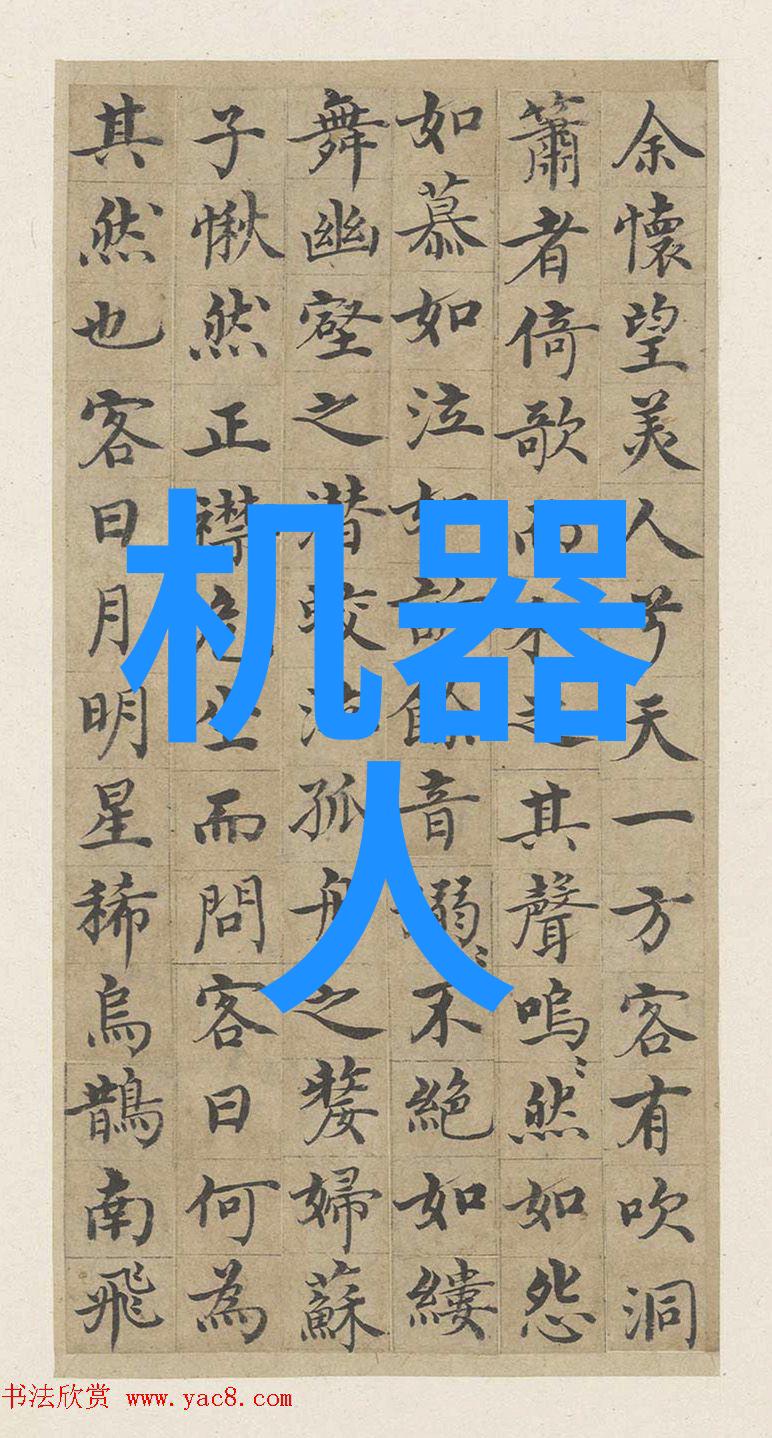 余懷望美人兮天一方客有吹洞
簫者倚歌而和之其聲嗚〻然如怨
如慕如泣如訴餘音嫋〻不絕如縷
舞幽壑之潛蛟泣孤舟之嫠婦蘇
子愀然正襟危坐而問客曰何為
其然也客曰月明星稀烏鵲南飛
机器
人
书法欣赏 www.yac8.com